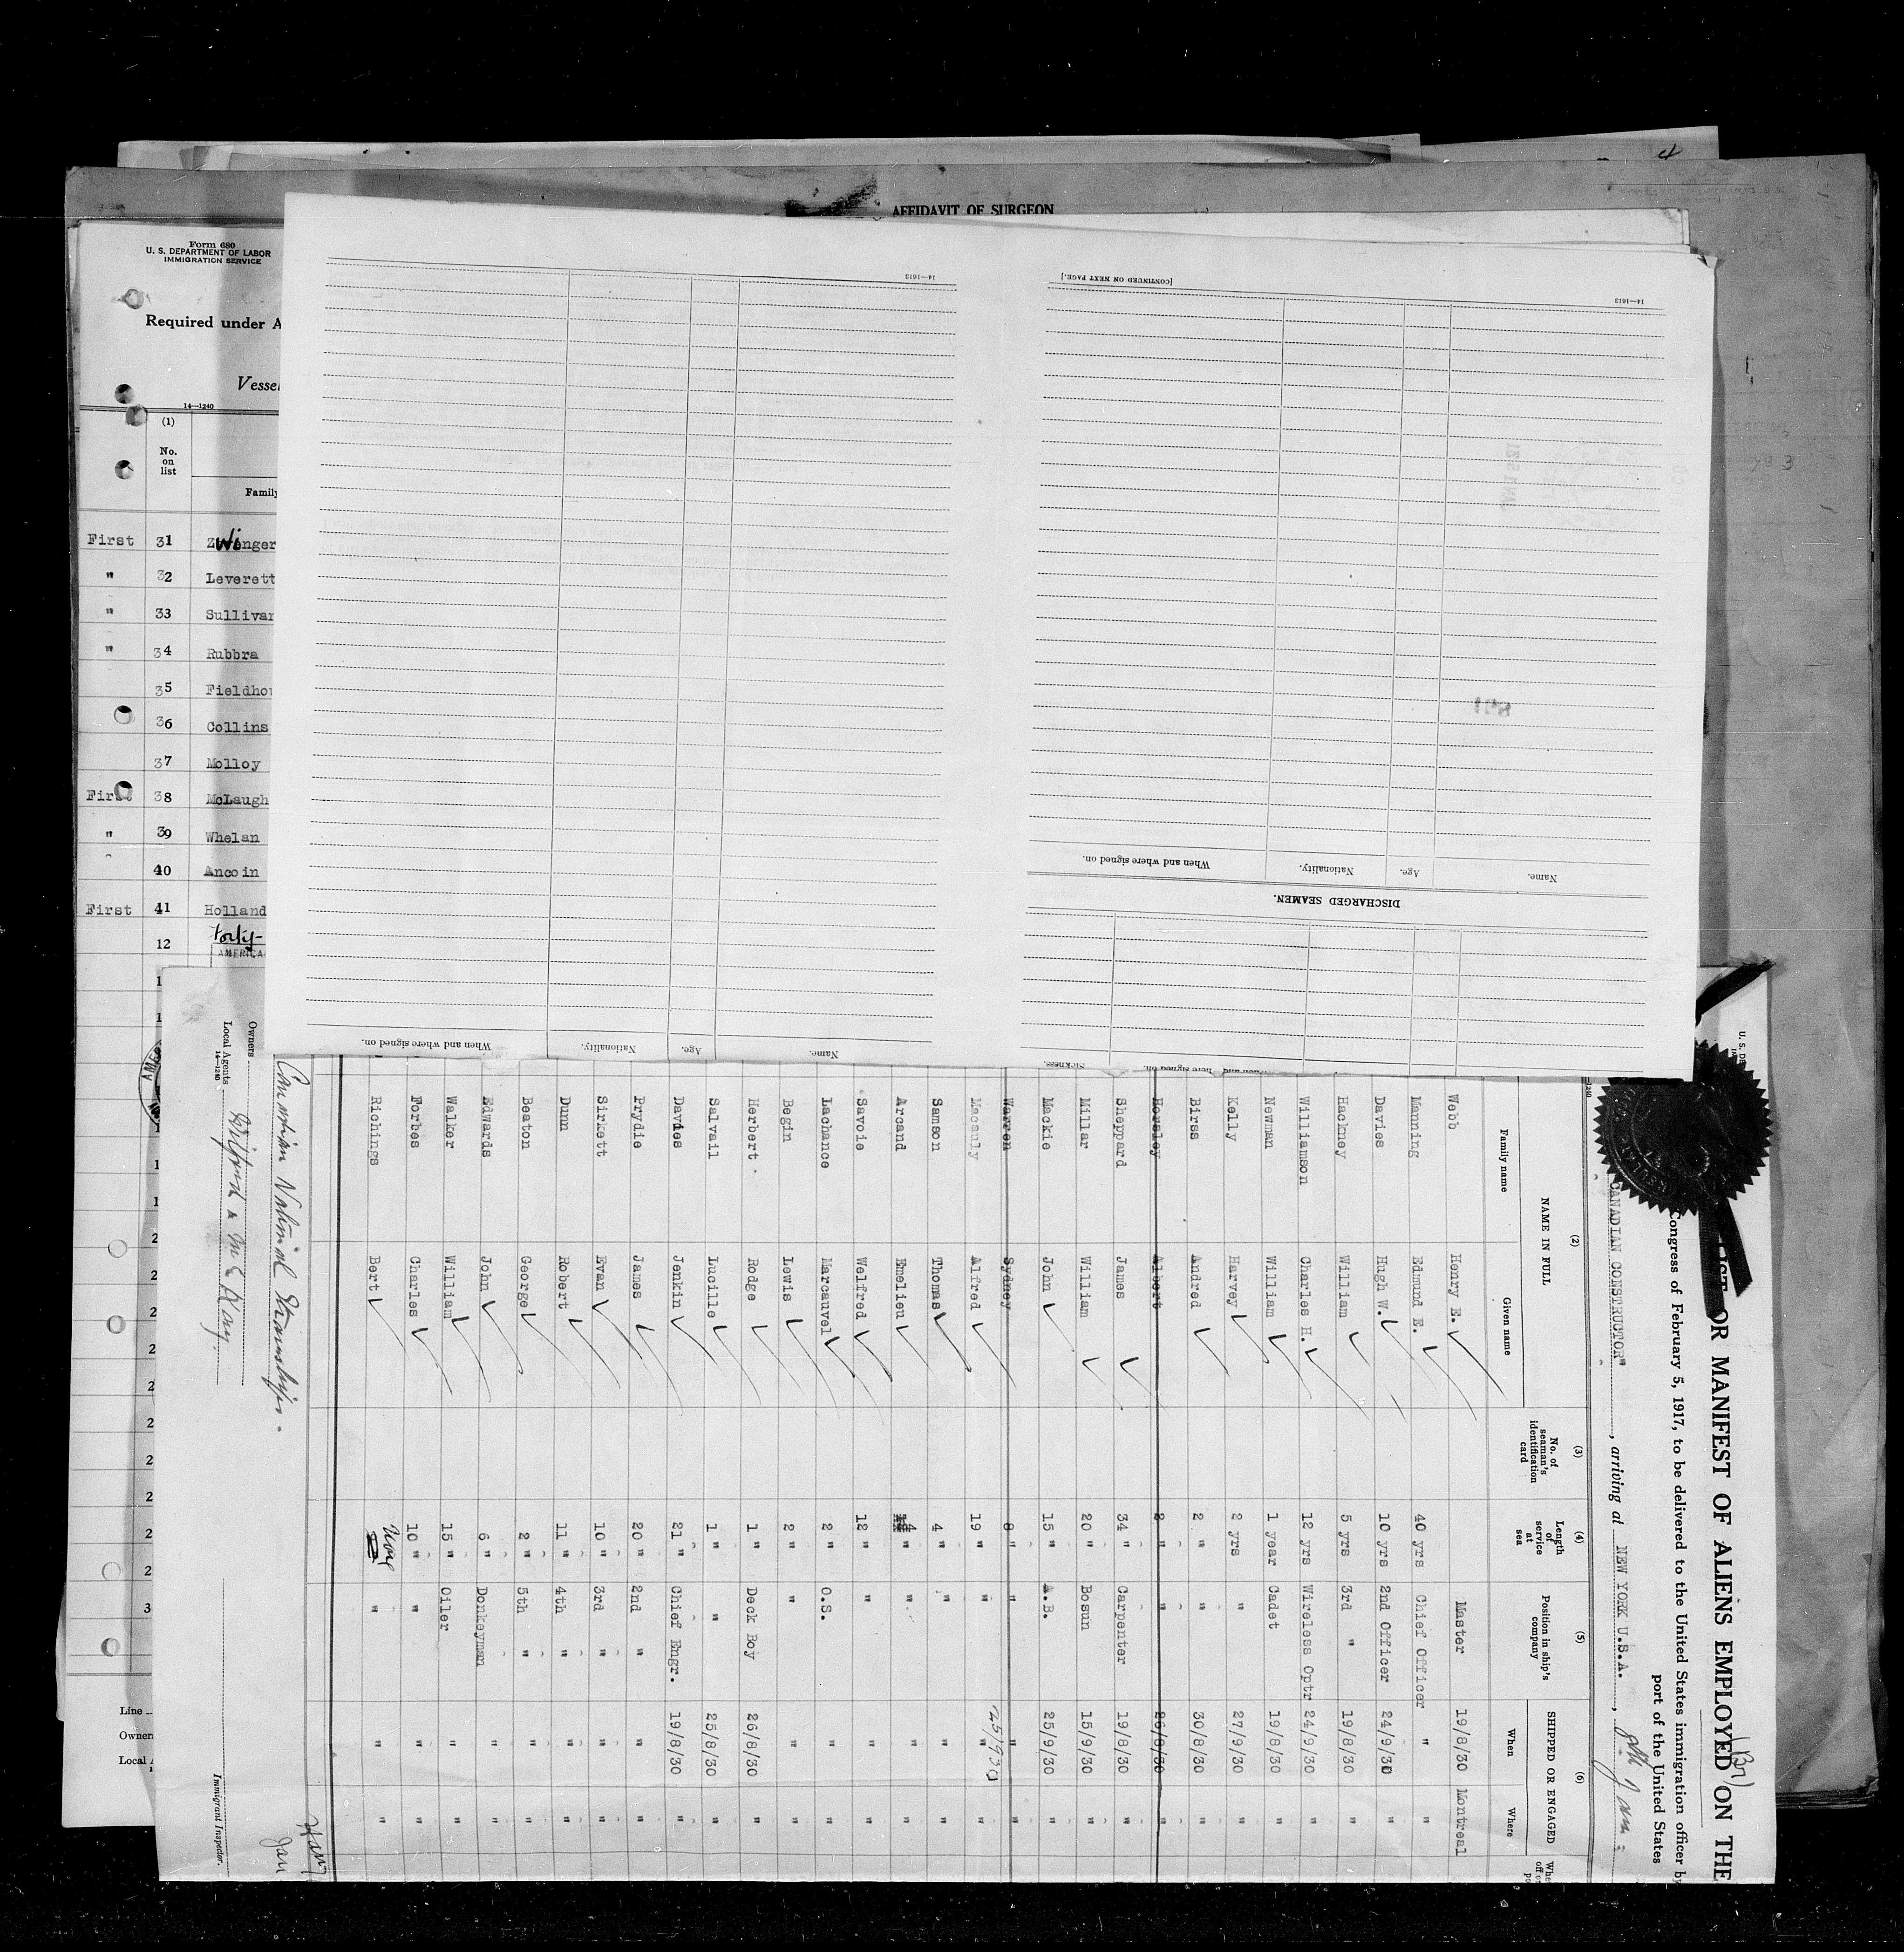 AFFIDAVIT OF SURGEON
Form 680
U. S. DEPARTMENT OF LABOR
IMMIGRATION SERVICE
Required under A
Vessel
14—1240
(1)
No. on list
Family
First 31 Zwinger
" 32 Leverett
" 33 Sullivan
" 34 Rubbra
35 Fieldhou
36 Collins
37 Molloy
First 38 McLaugh
" 39 Whelan
40 Ancoin
First 41 Holland
forty-
12 AMERICA
Line
Owners
Local A
14—1613
[CONTINUED ON NEXT PAGE.]
14—1613
Name. Age. Nationality. When and where signed on.
DISCHARGED SEAMEN.
Name. Age. Nationality. When and where signed on.
Sickness.
LIST OR MANIFEST OF ALIENS EMPLOYED ON THE
Congress of February 5, 1917, to be delivered to the United States immigration officer by
port of the United States
CANADIAN CONSTRUCTOR", arriving at NEW YORK U.S.A., 8th Jan:
(2) (3) (4) (5) (6)
NAME IN FULL
Family name Given name
No. of seaman's identification card
Length of service at sea
Position in ship's company
SHIPPED OR ENGAGED
When Where
Webb Henry E. Master 19/8/30 Montreal
Manning Edmund E. 40 yrs Chief Officer " "
Davies Hugh W. 10 yrs 2nd Officer 24/9/30 "
Hackney William 5 yrs 3rd " 19/8/30 "
Williamson Charles H. 12 yrs Wireless Optr 24/9/30 "
Newman William 1 year Cadet 19/8/30 "
Kelly Harvey 2 yrs " 27/9/30 "
Birss Andred 2 " " 30/8/30 "
Horsley Albert 2 " " 26/8/30 "
Sheppard James 34 " Carpenter 19/8/30 "
Millar William 20 " Bosun 15/9/30 "
Mackie John 15 " A.B. 25/9/30 "
Warren Sydney 8 " " " "
Macauly Alfred 19 " " " 25/9/30 "
Samson Thomas 4 " " "
Arcand Emelieu 4 " " " "
Savoie Welfred 12 " " "
Lachance Marcauvel 2 " O.S. " "
Begin Lewis 2 " " " "
Herbert Rodge 1 " Deck Boy 26/8/30 "
Salvail Lucille 1 " " 25/8/30 "
Davies Jenkin 21 " Chief Engr. 19/8/30 "
Prydie James 20 " 2nd " " "
Sirkett Evan 10 " 3rd " " "
Dunn Robert 11 " 4th " " "
Beaton George 2 " 5th " " "
Edwards John 6 " Donkeyman " "
Walker William 15 " Oiler " "
Forbes Charles 10 " " " "
Richings Bert None " " "
Owners Canadian National Steamships.
Local Agents
14—1240
Immigrant Inspector.